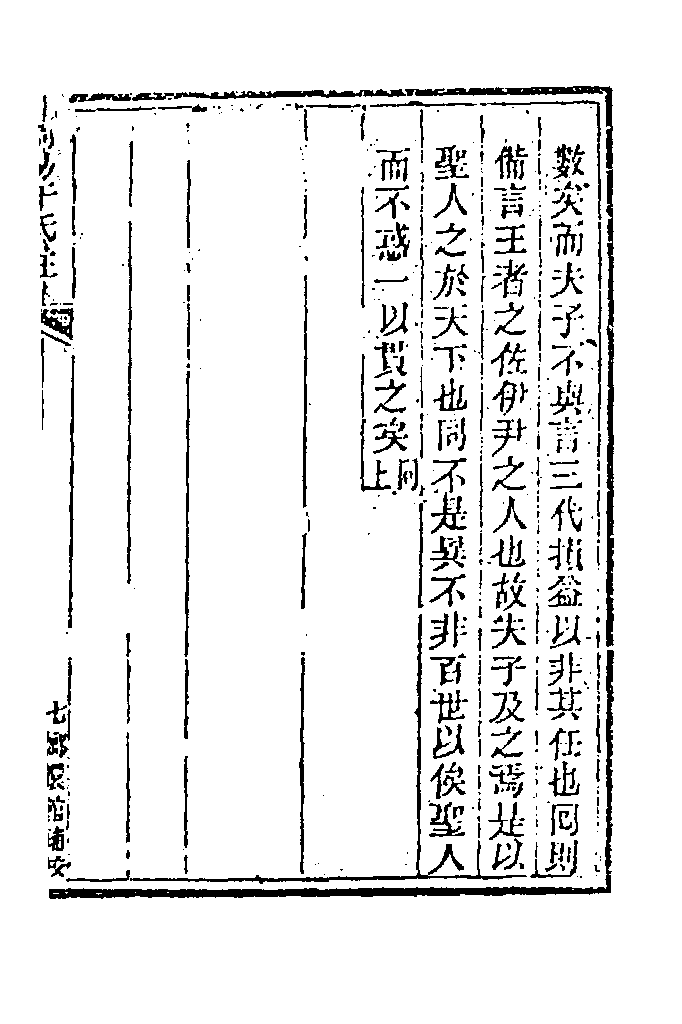 數矣而夫子不與言三代損益以非其任也囘則
備言王者之佐伊尹之人也故夫子及之焉是以
聖人之於天下也同不是異不非百世以俟聖人
而不惑一以貫之矣同上
易干氏注
七
館補